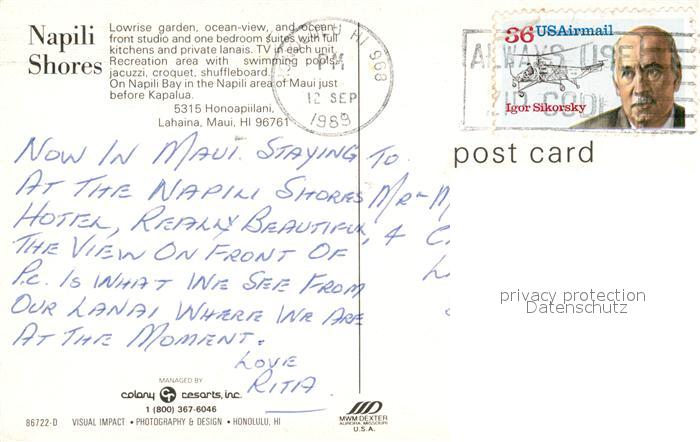 Napili
Shores
Lowrise garden, ocean-view, and ocean-
front studio and one bedroom suites with full
kitchens and private lanais. TV in each unit.
Recreation area with swimming pools,
jacuzzi, croquet, shuffleboard.
On Napili Bay in the Napili area of Maui just
before Kapalua.
5315 Honoapiilani,
Lahaina, Maui, HI 96761
HI 968
PM
12 SEP
1989
ALWAYS USE
ZIP CODE
36 USAirmail
Igor Sikorsky
post card
NOW IN MAUI. STAYING
AT THE NAPILI SHORES
HOTEL, REALLY BEAUTIFUL,
THE VIEW ON FRONT OF
P.C. IS WHAT WE SEE FROM
OUR LANAI WHERE WE ARE
AT THE MOMENT.
LOVE
RITA
TO.
MR
4
privacy protection
Datenschutz
MANAGED BY
colony resorts, inc.
1 (800) 367-6046
MWM DEXTER
AURORA, MISSOURI
U.S.A.
86722-D VISUAL IMPACT • PHOTOGRAPHY & DESIGN • HONOLULU, HI